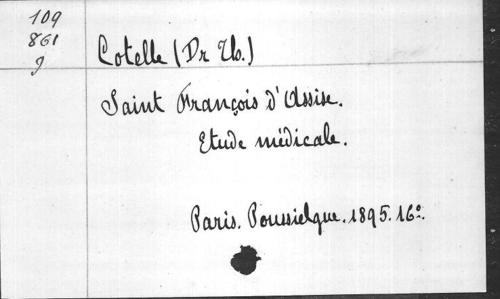 109
861
g
Cotelle (Dr Th.)
Saint François d'Assise.
Etude médicale.
Paris. Poussielgue. 1895. 16º.